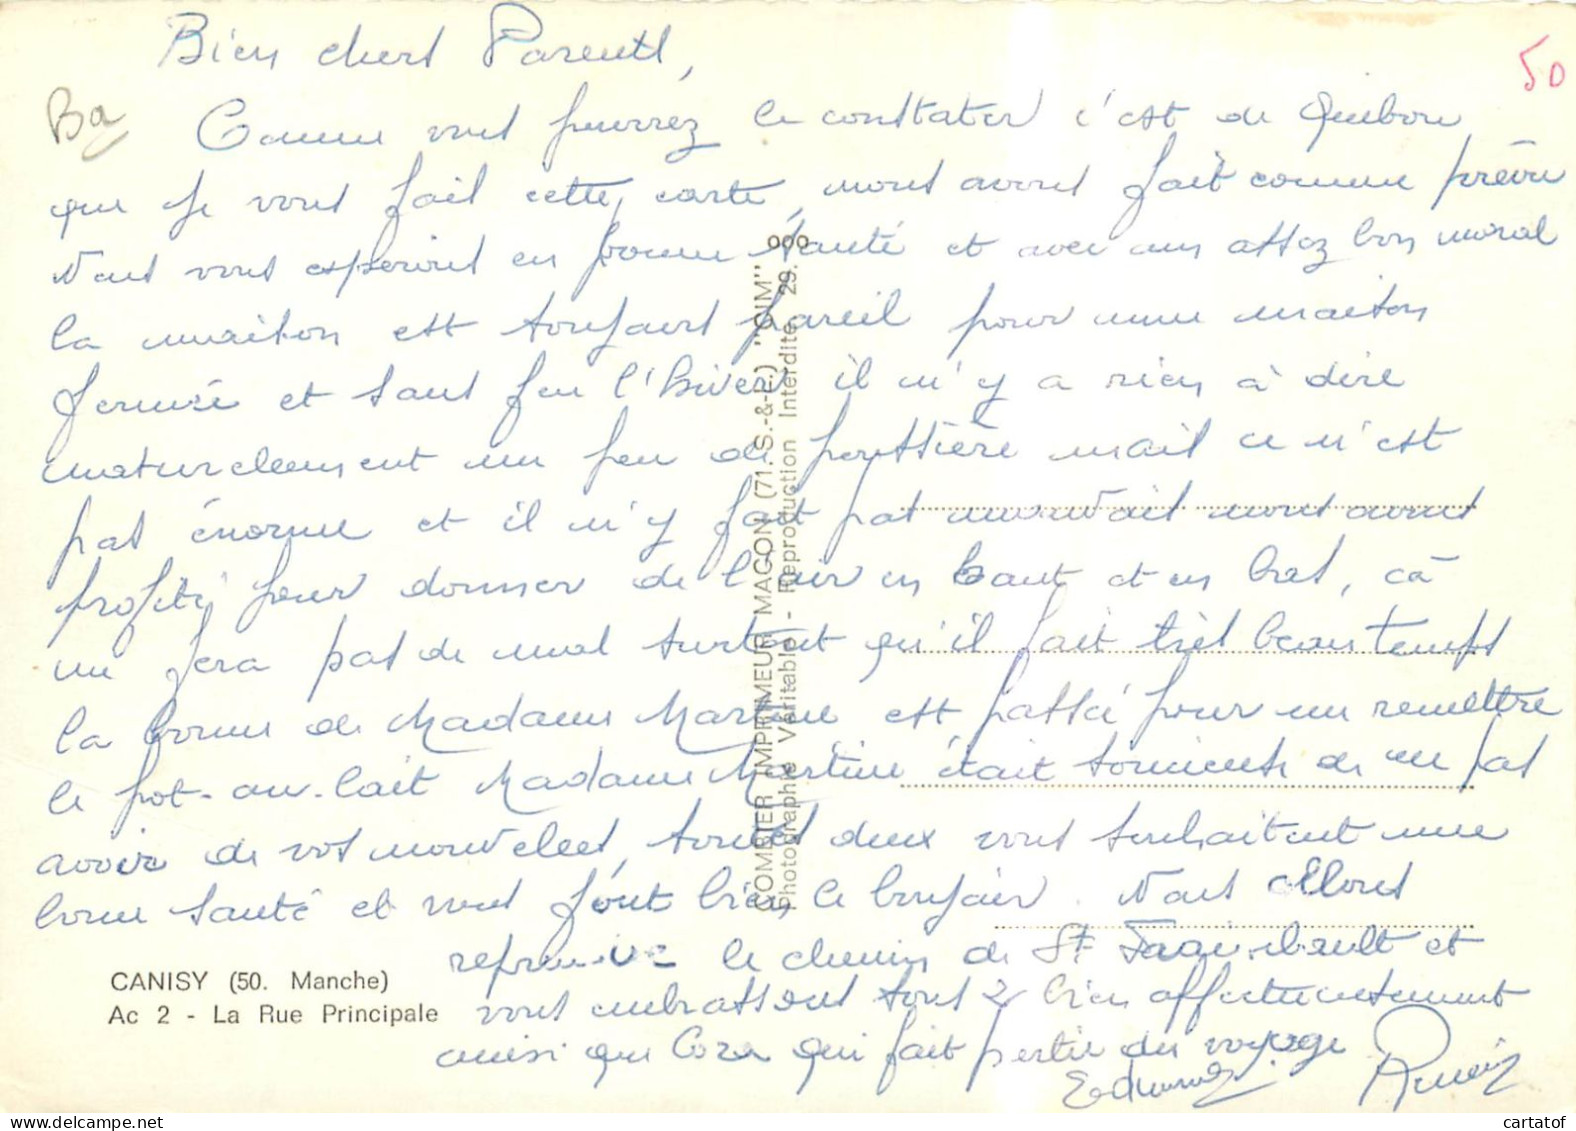 Bien chers Parents,
50
Ba
Comme vous pourrez le constater c'est de Quibou
que je vous fais cette carte, nous avons fait comme prévu
Nous vous espérons en bonne santé et avec un assez bon moral
la maison est toujours pareil pour une maison
fermée et sans feu l'hiver il n'y a rien à dire
naturellement un peu de poussière mais ce n'est
pas énorme et il n'y fait pas mauvais nous avons
profité pour donner de l'air en haut et en bas, cà
ne fera pas de mal surtout qu'il fait très beau temps
la bonne de Madame Martine est passée pour me remettre
le pot-au-lait Madame Martine était soucieuse de ne pas
avoir de vos nouvelles, toutes deux vous souhaitent une
bonne santé et vous font bien le bonjour. Nous allons
reprendre le chemin de St
et
vous embrassons tous 2 bien affectueusement
ainsi que Cora qui fait partie du voyage
Edmond
CANISY (50. Manche)
Ac 2 - La Rue Principale
COMBIER IMPRIMEUR MACON (71. S.-&-L.) "CIM"
Photographie Véritable - Reproduction Interdite 29.
cartatof